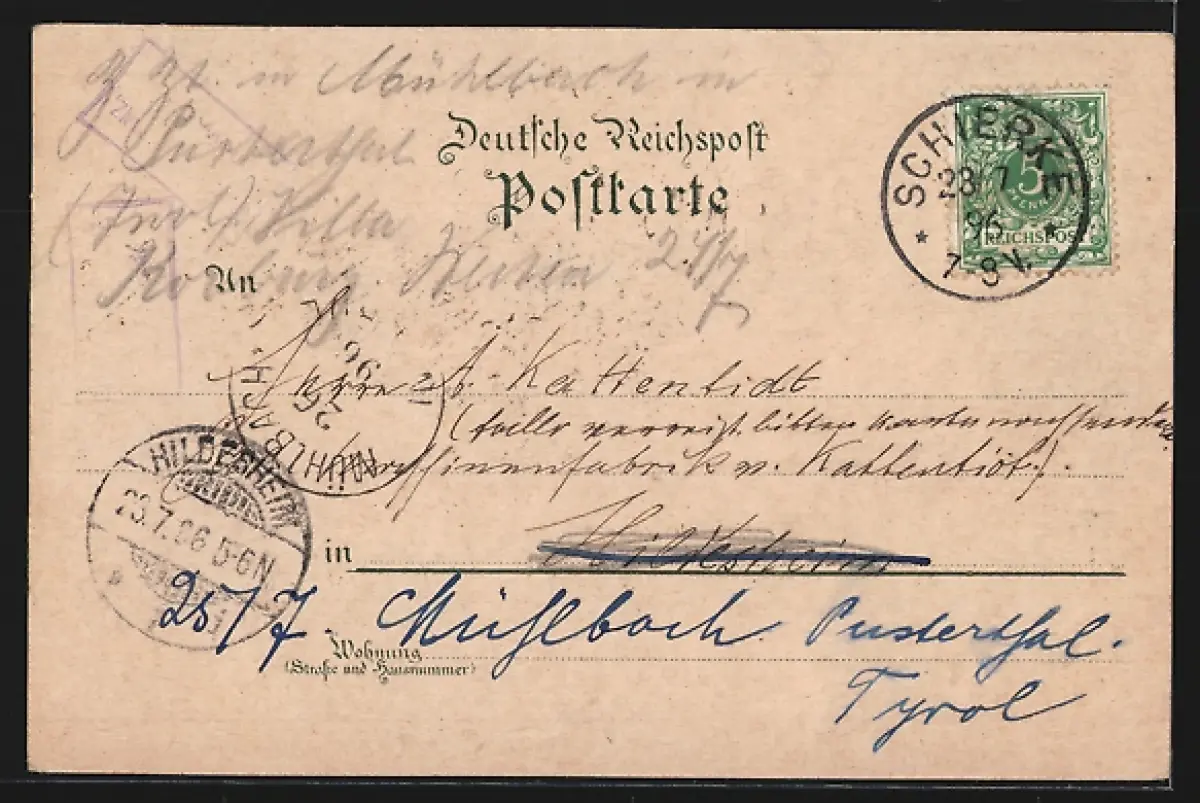 z. Zt. in Mühlbach im
Pusterthal
(Tyrol) Villa
Deutsche Reichspost
Postkarte
SCHIERKE
23 7
96
7-8V.
5
PFENNIG
REICHSPOST
An
24/7
Herrn A. Kattentidt
(falls verreist bitte Karte nachsenden
MÜHLBACH
26
96
fabrik v. Kattentidt).
HILDESHEIM
23.7.96 5-6N
in Hildesheim
25/7. Mühlbach Pusterthal.
Wohnung
(Straße und Hausnummer)
Tyrol